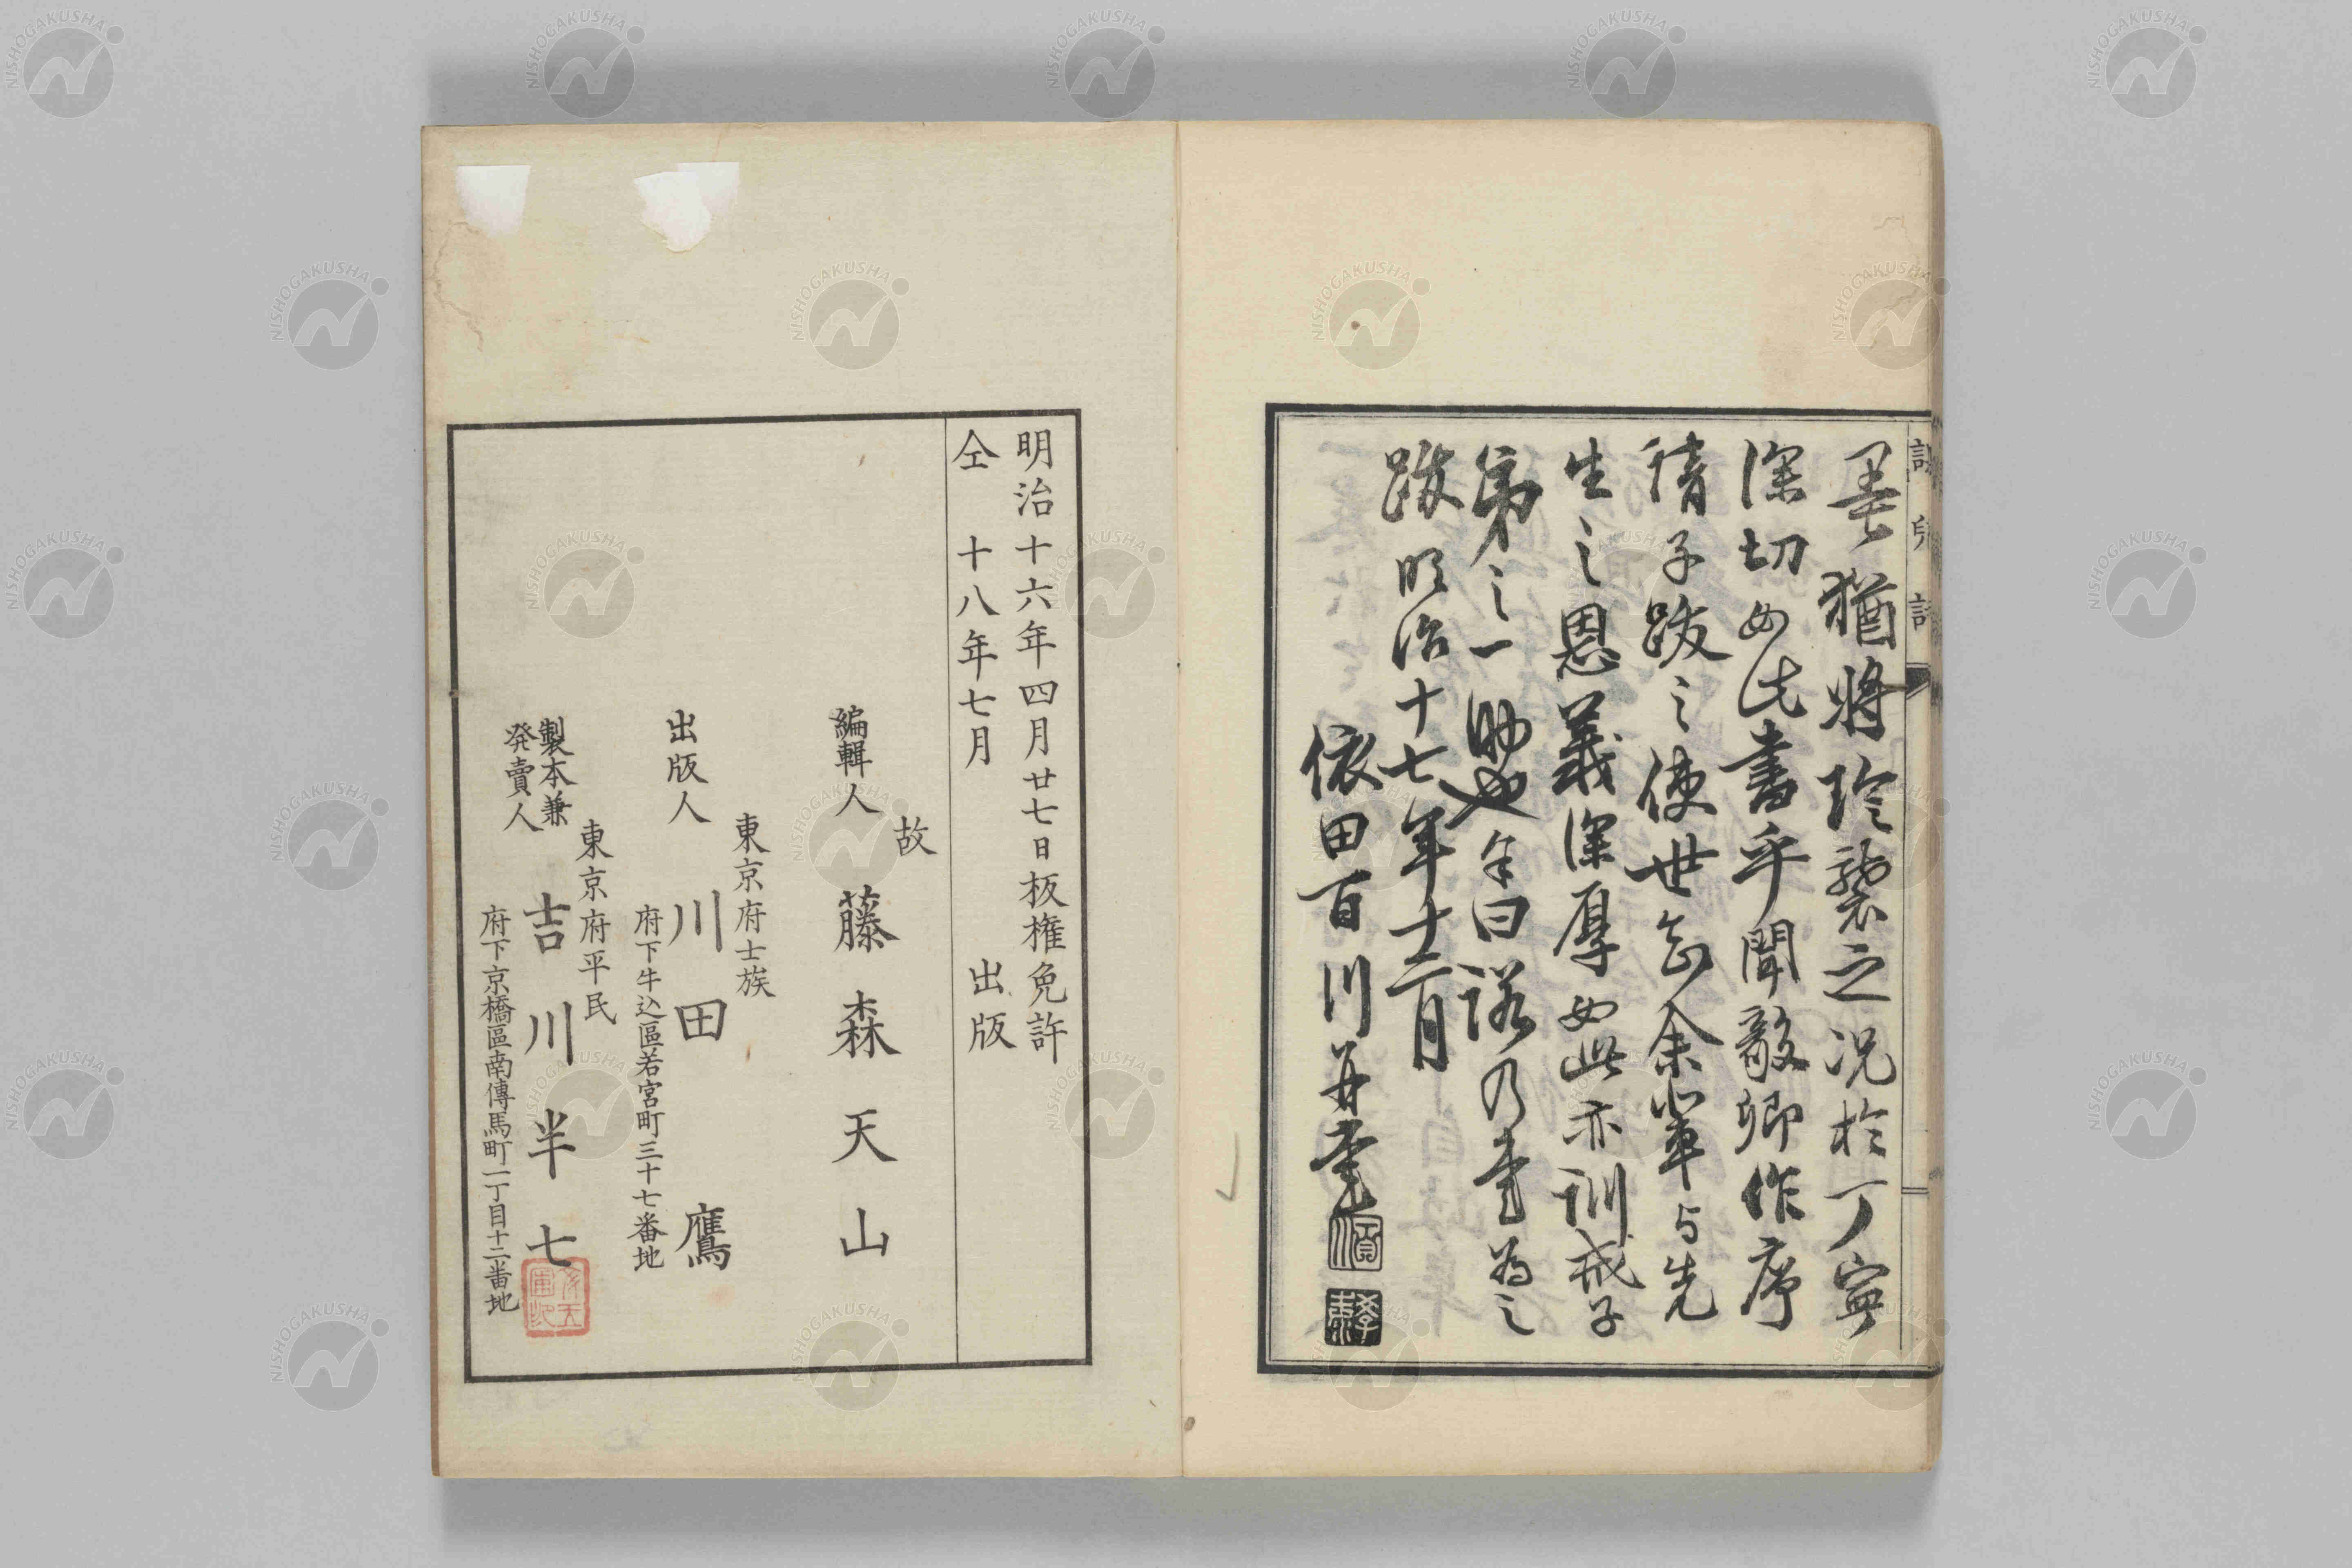 墨猶將珍襲之況於丁寧
深切如此書乎聞毅卿作序
請子跋之使世知余輩与先
生之恩義深厚如此亦訓戒子
弟之一助也余曰諾乃書為之
跋明治十七年十二月
依田百川并書
明治十六年四月廿七日板権免許
仝 十八年七月 出版
故
編輯人 藤森天山
東京府士族
出版人 川田 鷹
府下牛込區若宮町三十七番地
東京府平民
製本兼
発賣人 吉川半七
府下京橋區南傳馬町一丁目十二番地
NISHOGAKUSHA